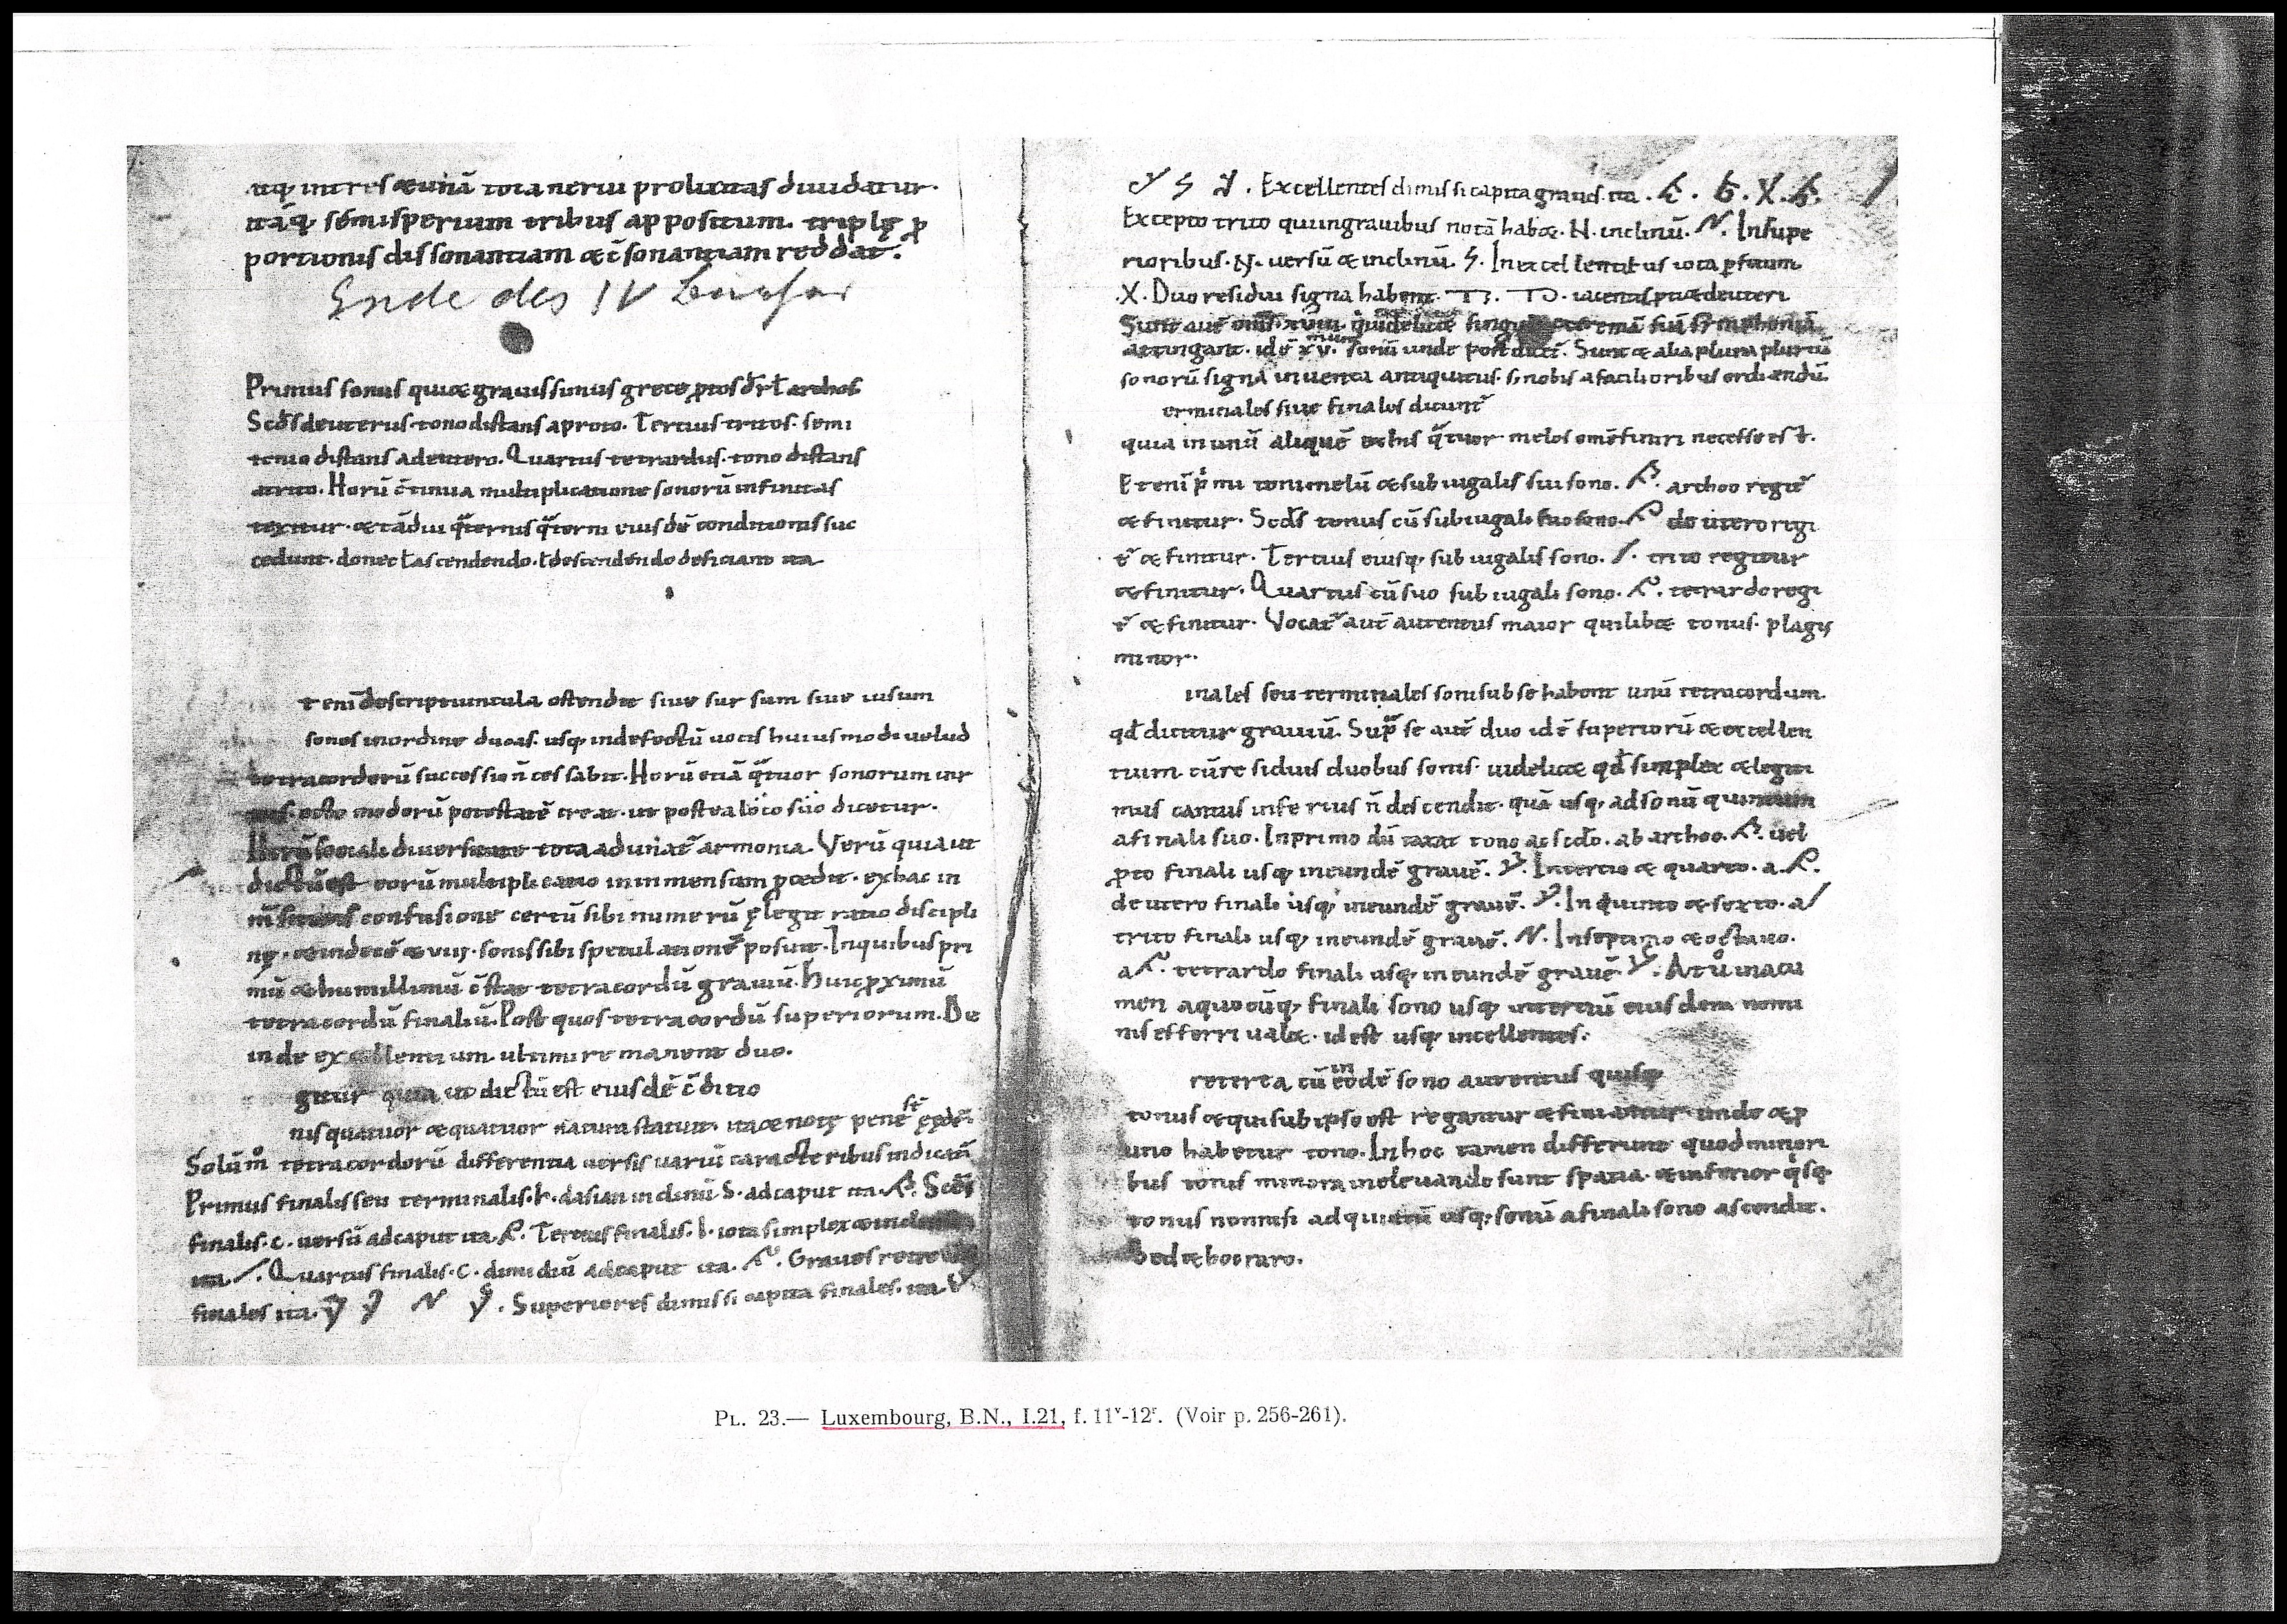 utq; inter se & unā tota neruu prolixitas diuidatur.
itáq; sémisperium tribus appositum. triplę p
portionis dissonantiam & c̄sonantiam reddat.
Ende des IV
Primus sonus qui & grauissimus grece ptos dr̄ ł archos
Scđs deuterus tono distans a proto. Tertius tritos. semi
tonio distans a deutero. Quartus tetrardus. tono distans
a trito. Horū c̄tinua multiplicatione sonorū infinitas
texitur. & tādiu q̄ternis q̄terni eiusdē conditionis suc
cedunt. donec ł ascendendo. ł descendendo deficiant ita
t eni descriptiuncula ostendit siue sursum siue iusum
sonos in ordine ducas. usq; in defectū uocis huiusmodi
tetracordorū successio n̄ cessabit. Horū etiā q̄tuor sonorum uir
tus. octo modorū potestatē creat. ut postea loco suo dicetur.
Horū sociali diuersitate tota adunat̄ armonia. Verū quia ut
dictū est eorū multiplicatio in inmensum pcedit. ex hac in
confusione certū sibi numerū ęlegit ratio discipli
nę. & VIII. sonis sibi speculationē posuit. In quibus pri
mū & humillimū c̄stat tetracordū grauiū. Huic pximū
tetracordū finaliū. Post quos tetracordū superiorum. De
inde excellentium. ultimi remanent duo.
gitur quia ut dictū est eiusdē c̄ditio
nis quatuor & quatuor natura statuit. ita & notę penē
Solūm tetracordorū differentia uersis uariū caracteribus indicāt
Primus finalis seu terminalis. ⊦. dasian inclinū S. ad caput ita. Scđs
finalis. c. uersū ad caput ita. Tertius finalis. I. iota simplex
ita /. Quartus finalis. c. dimidiū ad caput ita. Graues
finales ita. N. Superiores dimissi capita finales. ita.
Excellentes dimissi capita graues ita.
Excepto trito qui in grauibus notā habet. N. inclinū. N. In supe
rioribus. N. uersū & inclinū. In excellentibus iota
. X. Duo residui signa habent. iacentis
Sunt autē
attingant. idē xv. sonū unde post dicet̄. Sunt & alia plura pluriū
sonorū signa inuenta antiquitus. s; nobis a facilioribus ordiendū.
erminales siue finales dicunt̄
quia in unū aliquē ex his q̄tuor melos om̄e finiri necesse est.
Etenī p̓mi toni melū & subiugalis sui sono. archoo regit̄
& finitur. Scđs tonus cū subiugali suo sono. deutero regi
t̄ & finitur. Tertius eiusq; subiugalis sono. /. trito regitur
& finitur. Quartus cū suo subiugali sono. tetrardo regi
t̄ & finitur. Vocat̄ autē autentus maior quilib& tonus. plagis
minor.
inales seu terminales soni sub se habent unū tetracordum.
qđ dicitur grauiū. Supͣ se autē duo idē superiorū & excellen
tium. cū residuis duobus sonis. uidelic& qđ simplex & legiti
mus cantus inferius n̄ descendit. quā usq; ad sonū quintum
a finali suo. In primo dū taxat tono ac scđo. ab archoo. uel
pto finali usq; in eundē grauē. In tertio & quarto. a
deutero finali usq; in eundē grauē. In quinto & sexto. a /
trito finali usq; in eundē grauē. N. In septimo & octauo.
a tetrardo finali usq; in eundē grauē. At
men a quocūq; finali sono usq; in tertiū eiusdem nomi
nis efferri ual&. id est usq; in cellentes.
reterea cū in eodē sono autentus quisq;
tonus & qui sub ipso est regantur & finiantur unde & p
uno habetur tono. In hoc tamen differunt quod minori
bus tonis minora in eleuando sunt spatia. & inferior qisq;
tonus nonnisi ad quintū usq; sonū a finali sono ascendit.
Sed & hoc raro.
PL. 23.— Luxembourg, B.N., I.21, f. 11v-12r. (Voir p. 256-261).